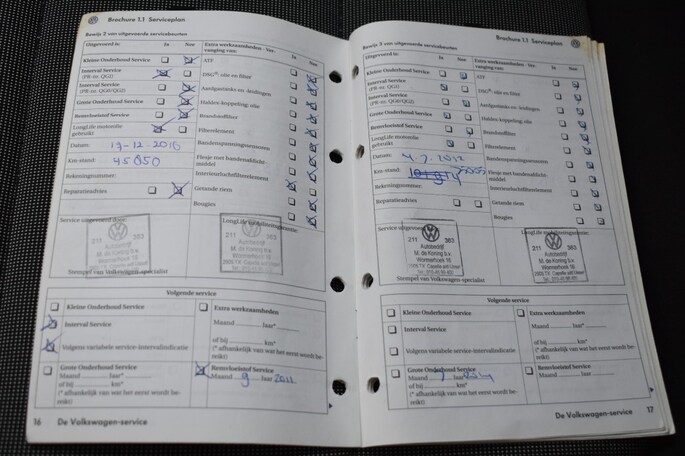 Brochure 1.1 Serviceplan
Bewijs 2 van uitgevoerde servicebeurten
Uitgevoerd in:
Ja
Nee
Kleine Onderhoud Service
Interval Service
(PR-nr. QG1)
Interval Service
(PR-nr. QG0/QG2)
Grote Onderhoud Service
Remvloeistof Service
LongLife motorolie
gebruikt
Datum: 17-12-2010
Km-stand: 45650
Rekeningnummer:
Reparatieadvies
Extra werkzaamheden - Ver-
vanging van:
Ja
Nee
ATF
DSG®-olie en filter
Aardgastanks en -leidingen
Haldex-koppeling: olie
Brandstoffilter
Filterelement
Bandenspanningssensoren
Flesje met bandenafdicht-
middel
Interieurluchtfilterelement
Getande riem
Bougies
Service uitgevoerd door:
LongLife
211
363
Autobedrijf
M. de Koning b.v.
Wormerhoek 16
211
363
Autobedrijf
M. de Koning b.v.
Wormerhoek 16
Stempel van Volkswagen-specialist
Volgende service
Kleine Onderhoud Service
Interval Service
Volgens variabele service-intervalindicatie
Grote Onderhoud Service
Maand Jaar*
of bij km*
(* afhankelijk van wat het eerst wordt be-
reikt)
Extra werkzaamheden
Maand Jaar*
of bij km*
(* afhankelijk van wat het eerst wordt be-
reikt)
Remvloeistof Service
Maand 9 Jaar 2011
16 De Volkswagen-service
Brochure 1.1 Serviceplan
Bewijs 3 van uitgevoerde servicebeurten
Uitgevoerd in:
Ja
Nee
Kleine Onderhoud Service
Interval Service
(PR-nr. QG1)
Interval Service
(PR-nr. QG0/QG2)
Grote Onderhoud Service
Remvloeistof Service
LongLife motorolie
gebruikt
Datum:
Km-stand:
Rekeningnummer:
Reparatieadvies
Extra werkzaamheden - Ver-
vanging van:
Ja
Nee
ATF
DSG®-olie en filter
Aardgastanks en -leidingen
Haldex-koppeling: olie
Brandstoffilter
Filterelement
Bandenspanningssensoren
Flesje met bandenafdicht-
middel
Interieurluchtfilterelement
Getande riem
Bougies
Service uitgevoerd door:
211
363
Autobedrijf
M. de Koning b.v.
Wormerhoek 16
211
363
Autobedrijf
M. de Koning b.v.
Wormerhoek 16
Stempel van Volkswagen-specialist
Volgende service
Kleine Onderhoud Service
Interval Service
Volgens variabele service-intervalindicatie
Grote Onderhoud Service
Maand
of bij km*
(* afhankelijk van wat het eerst wordt be-
reikt)
Extra werkzaamheden
Maand Jaar*
of bij km*
(* afhankelijk van wat het eerst wordt be-
reikt)
Remvloeistof Service
Maand Jaar
De Volkswagen-service 17